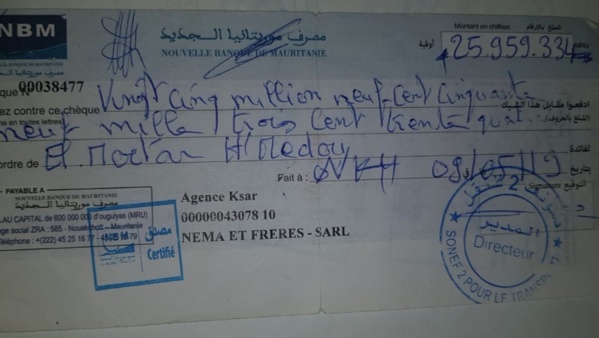 NBM
مصرف موريتانيا الجديد
NOUVELLE BANQUE DE MAURITANIE
Montant en chiffres
أوقية
25.959.334
00038477
ez contre ce chèque Vingt cinq million neuf cent cinquante
ادفعوا مقابل هذا الشيك
me en toutes lettres)
(المبلغ بالحروف)
neuf mille trois cent trente quat
لفائدة
ordre de El Moctar
Fait à : NKH 09/05/19 بتاريخ
Signature التوقيع
PAYABLE A
NOUVELLE BANQUE DE MAURITANIE
مصرف موريتانيا الجديد
AU CAPITAL DE 600 000 000 d'ouguiyas (MRU)
ge social ZRA : 585 - Nouakchott - Mauritanie
Téléphone : +(222) 45 25 16 77
Agence Ksar
00000043078 10
NEMA ET FRERES - SARL
NBM مصدق
Certifié
المدير
Directeur
SONEF 2 POUR LE TRANSPORT